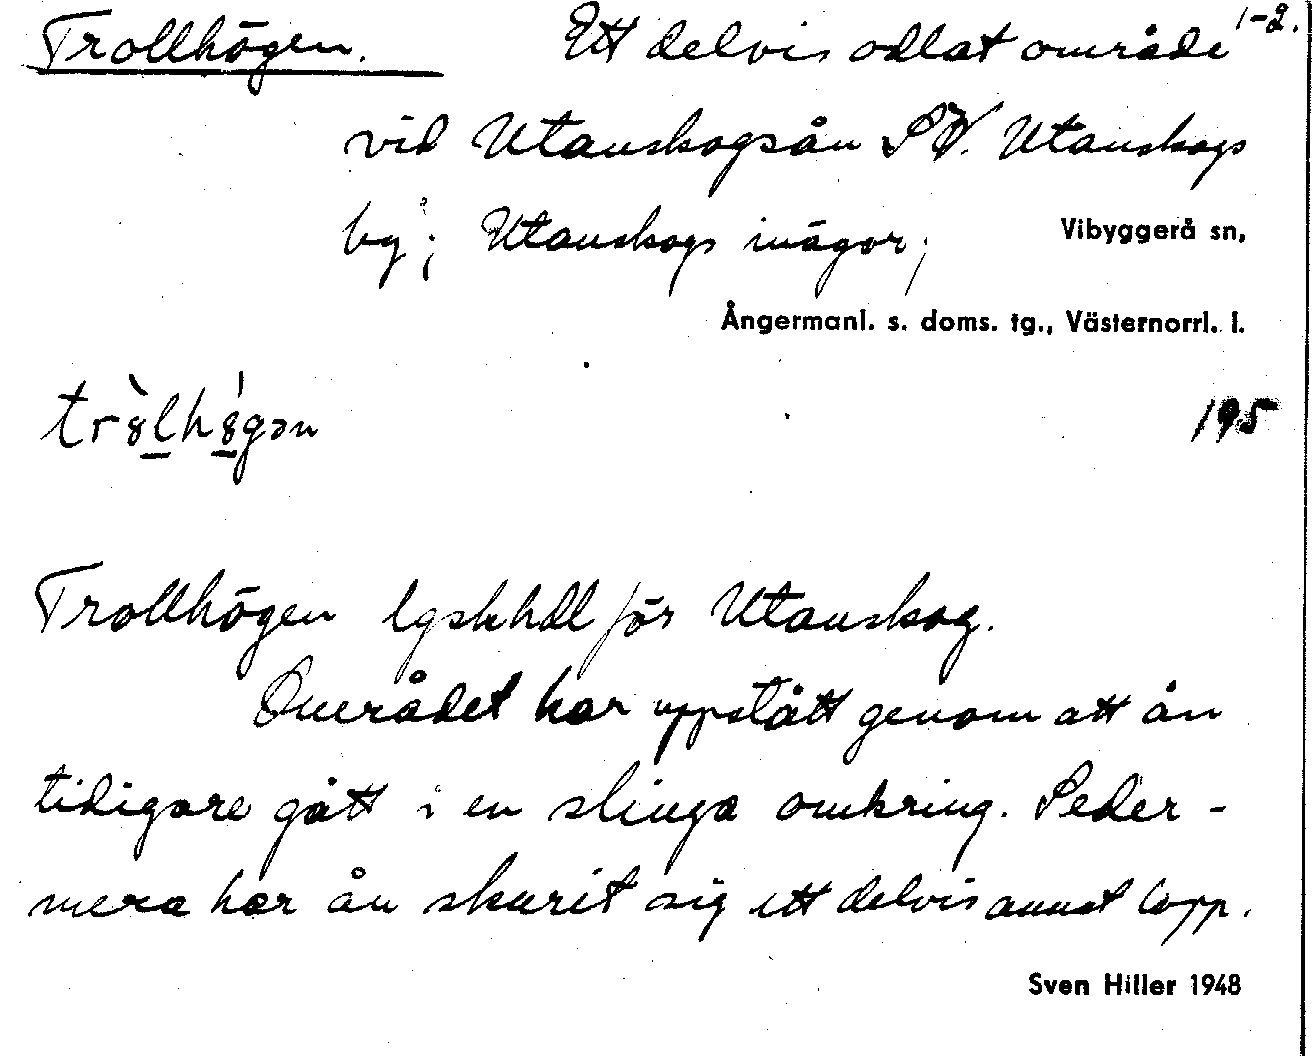 Trollhögen. Ett delvis odlat område 1-2.
vid Utanskogsån SV. Utanskogs
by; Utanskogs inägor; Vibyggerå sn,
Ångermanl. s. doms. tg., Västernorrl. l.
195
Trollhögen lgskhdl för Utanskog.
Området har uppstått genom att ån
tidigare gått i en slinga omkring. Seder-
mera har ån skurit sig ett delvis annat lopp.
Sven Hiller 1948